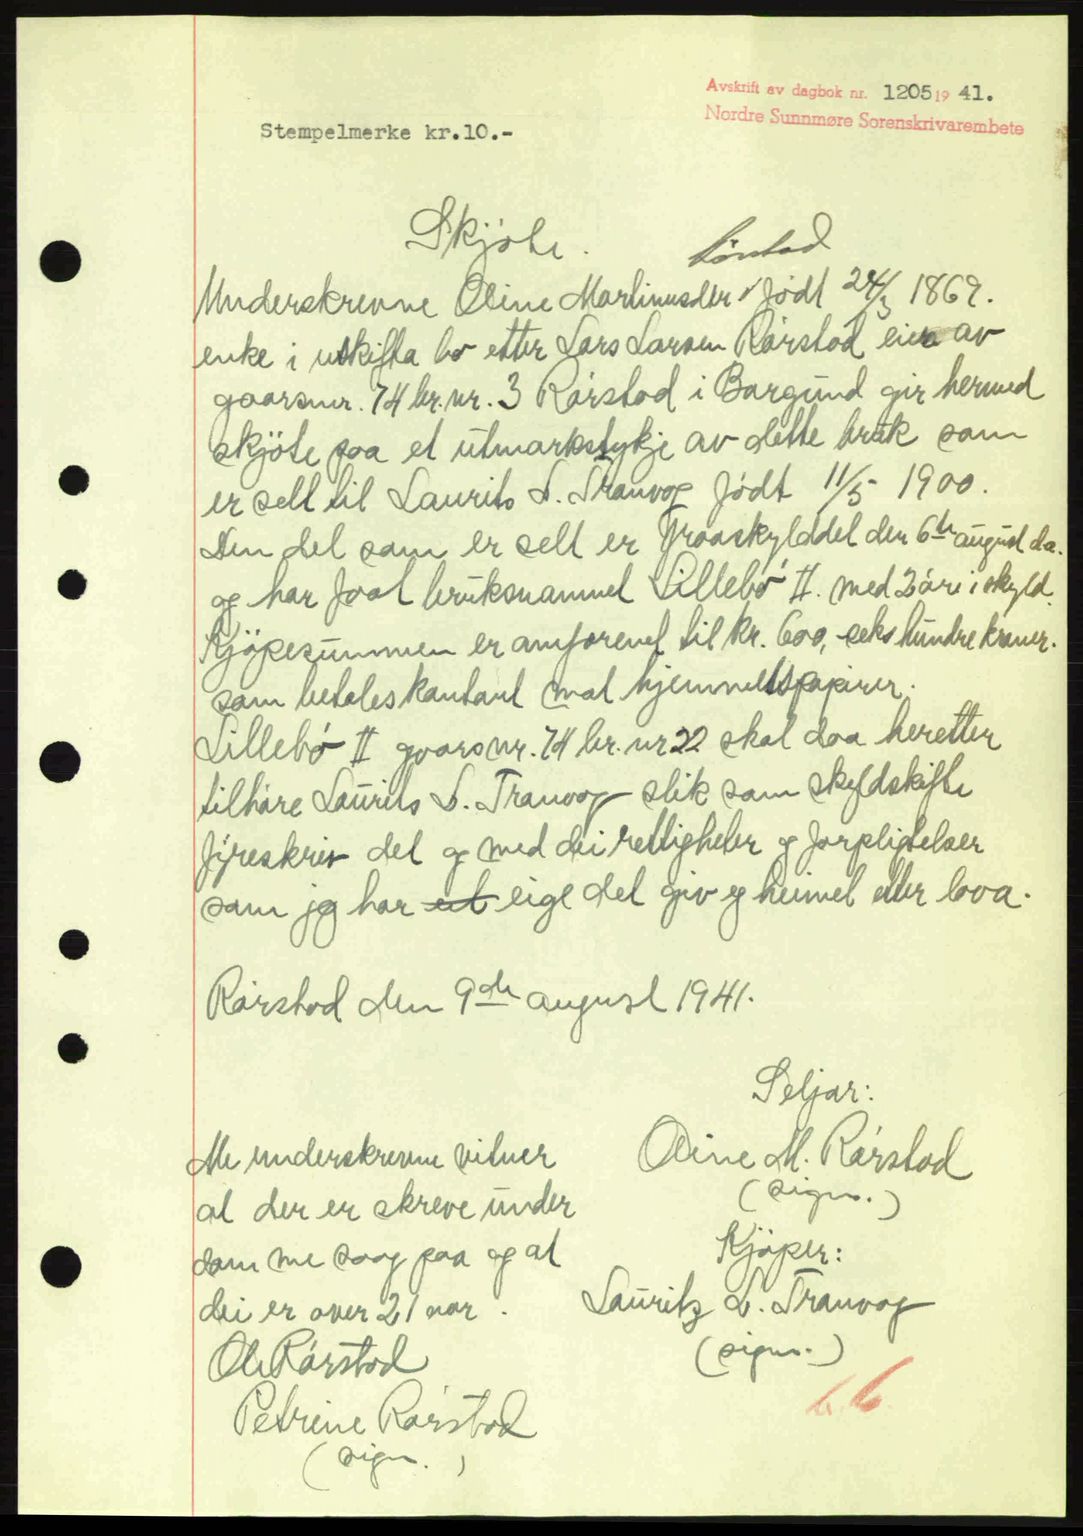 Avskrift av dagbok nr. 1205 19 41.
Nordre Sunnmøre Sorenskrivarembete
Stempelmerke kr.10.-
Skjöte.
Underskrevne Oline Martinusdtr Rörstad född 24/3 1869.
enke i uskifta bo etter Lars Larsen Rörstad eier av
gaardsnr. 74 br. nr. 3 Rörstad i Borgund gir hermed
skjöte paa et utmarksstykje av dette bruk som
er selt til Laurits L. Tranvog födt 11/5 1900.
Den del som er selt er fraaskylddel den 6te august da.
og har faat bruksnamnet Lillebö II. med 2 öre i skyld.
Kjöpesummen er omforenet til kr. 600, seks hundre kroner.
som betales kontant mot hjemmelspapirer.
Lillebö II gaardsnr. 74 br. nr 22 skal daa heretter
tilhöre Laurits L. Tranvog slik som skyldskifte
fyreskriv det og med dei rettigheter og forpligtelser
som jeg har at eige det giv eg heimel etter lova.
Rörstad den 9de august 1941.
Seljar:
Oline M. Rörstad
(sign.)
Kjöper:
Lauritz L. Tranvog
(sign.)
Me underskrevne vitner
at der er skreve under
som me saag paa og at
dei er over 21 aar.
Ole Rörstad
Petrine Rörstad
(sign.)